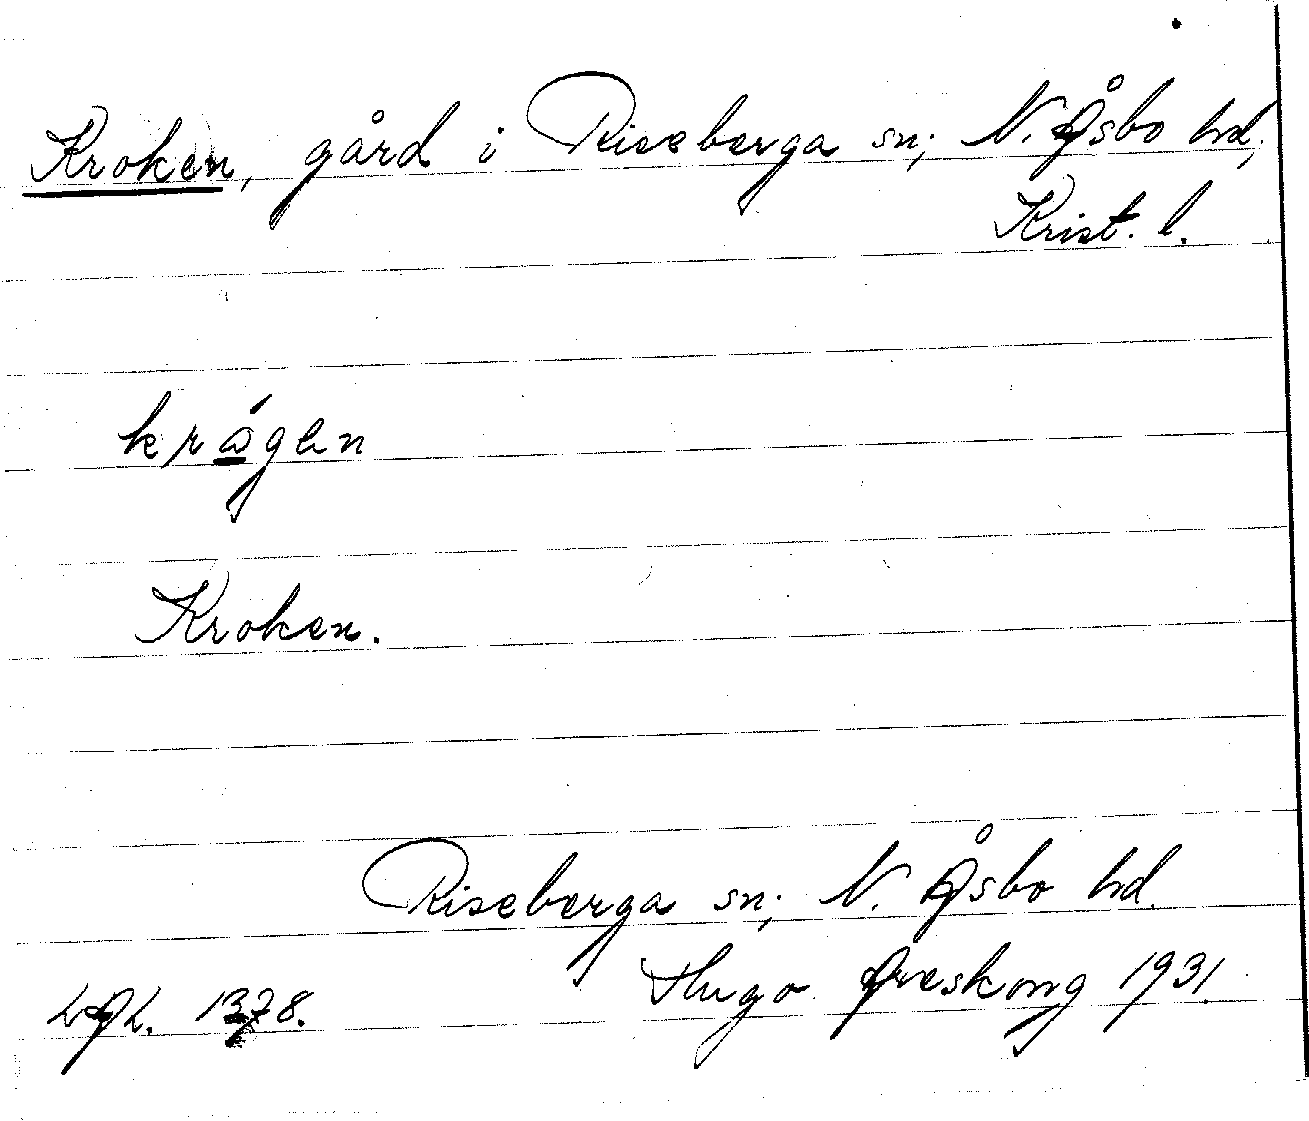 Kroken, gård i Riseberga sn; N. Åsbo hd,
Krist. l.
krågen
Kroken.
Riseberga sn; N. Åsbo hd.
Hugo Areskoug 1931.
LAL. 1378.